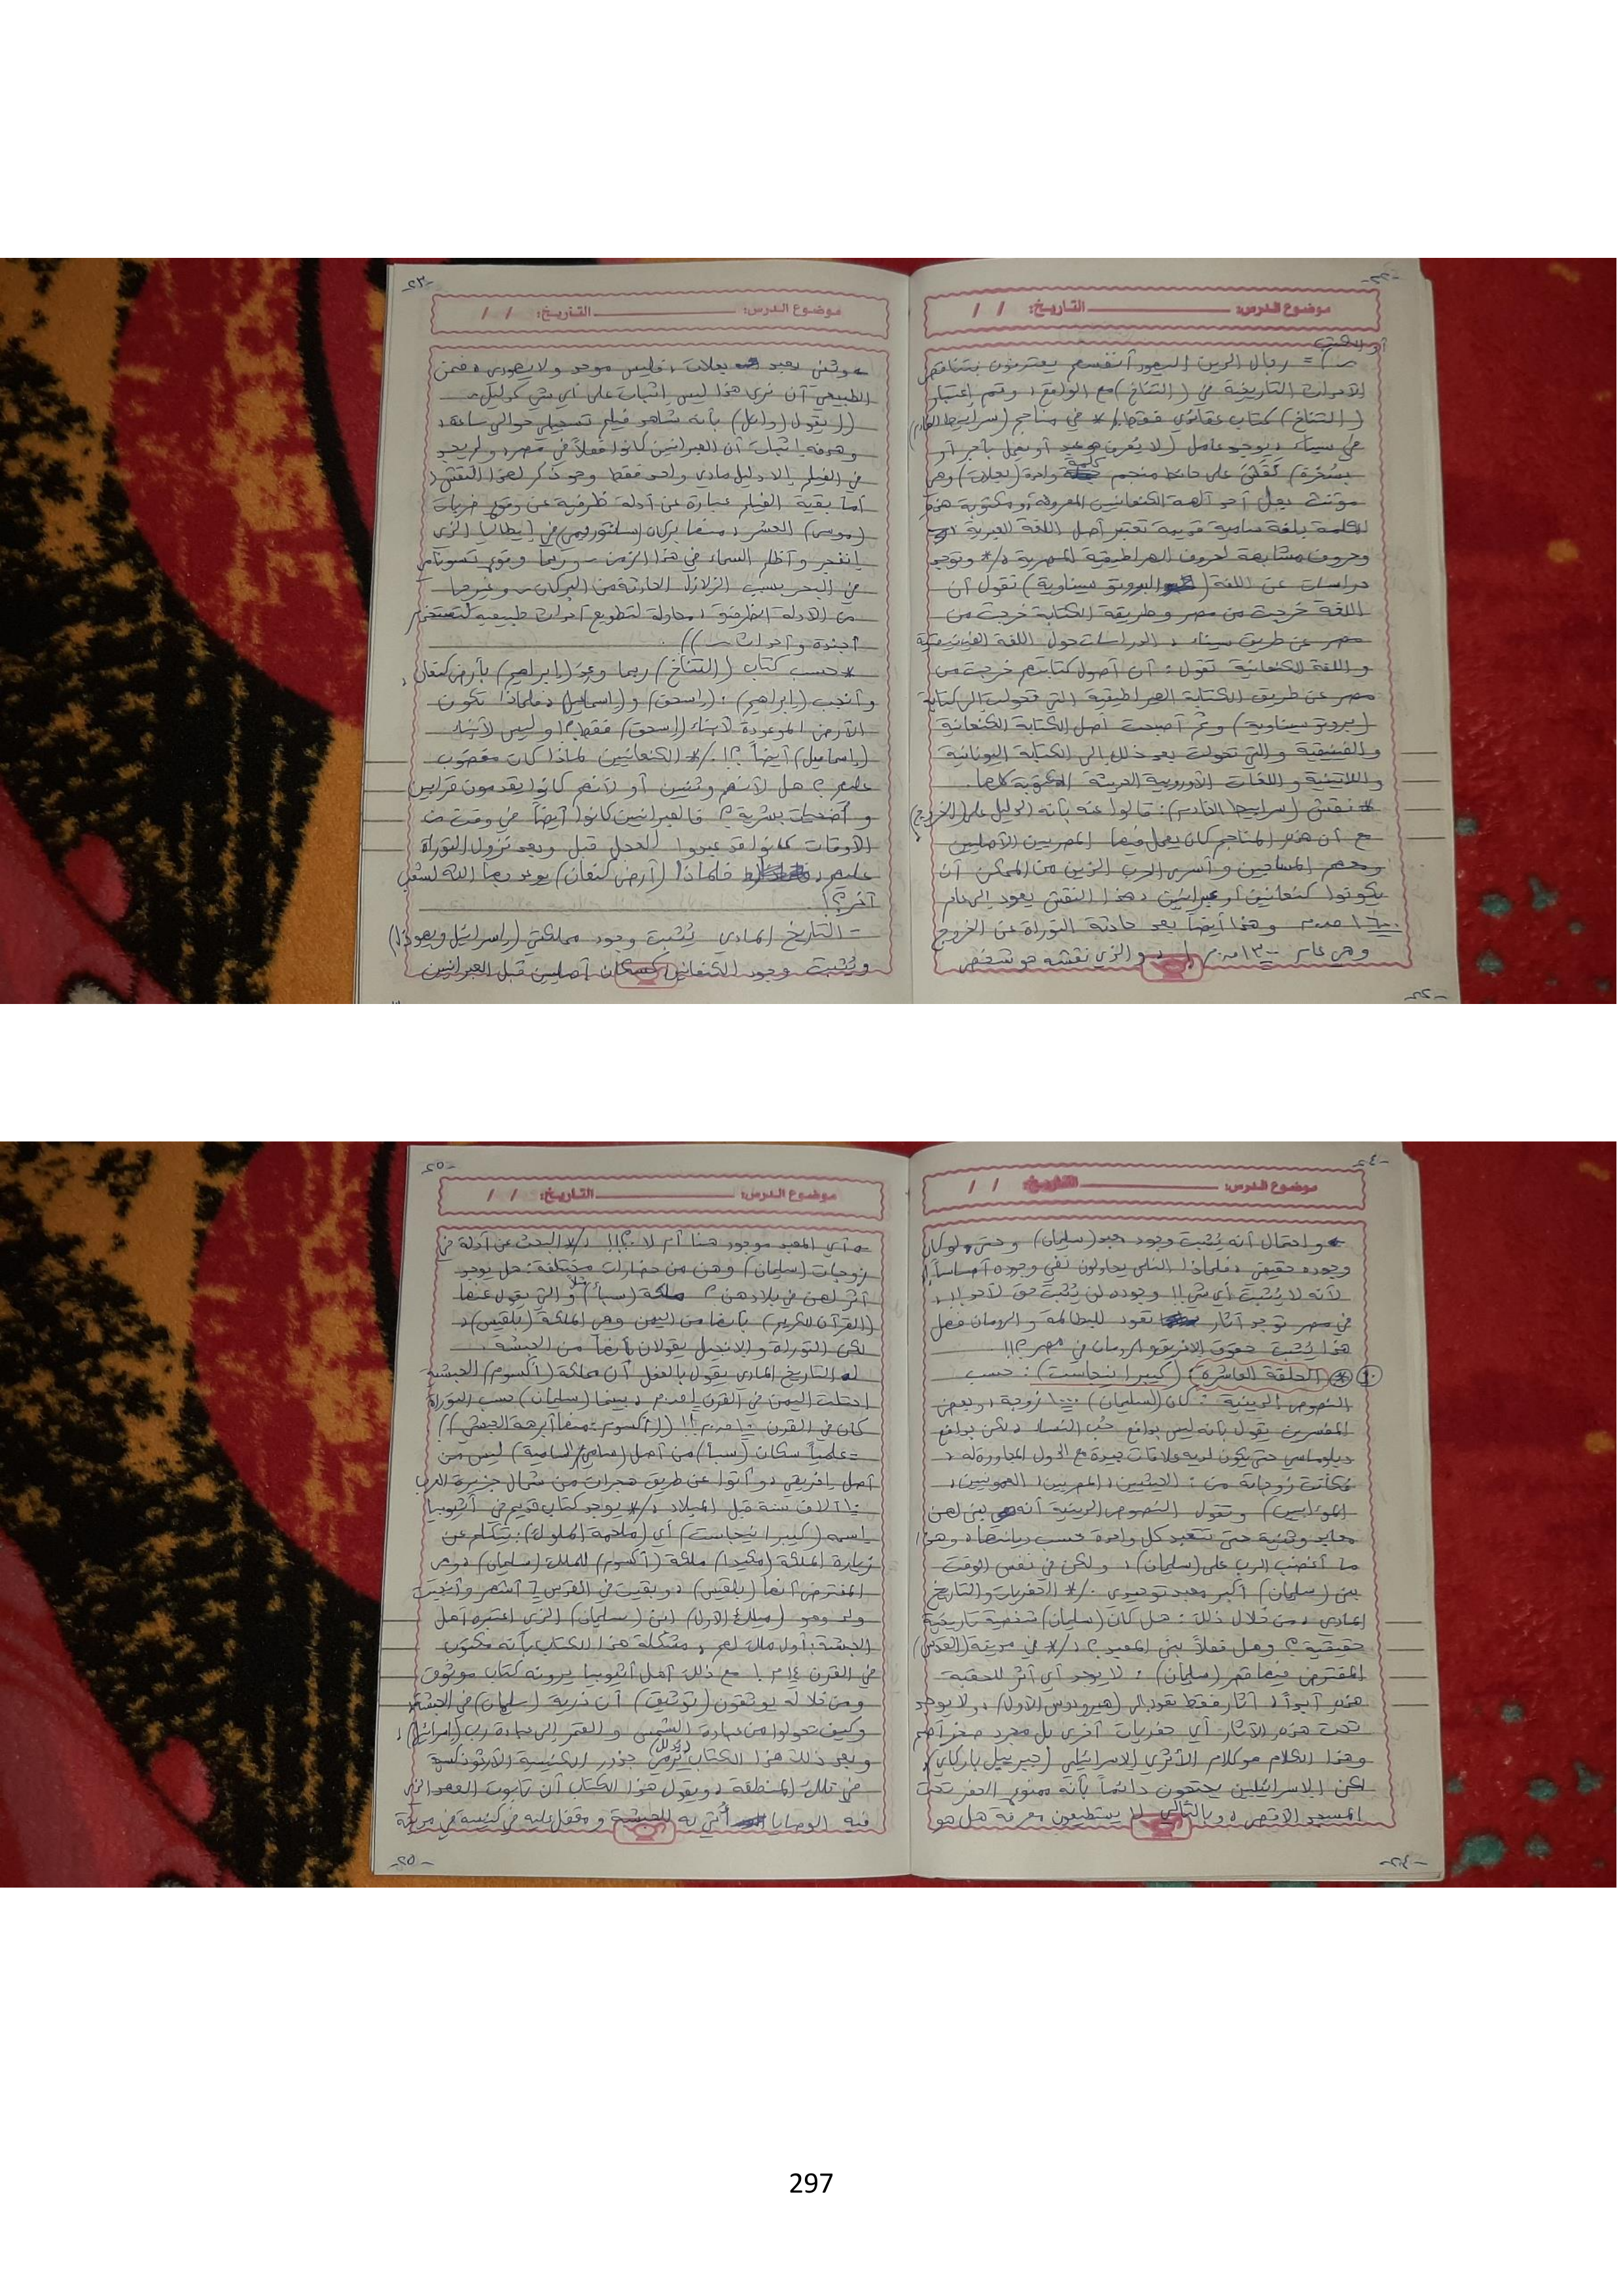 -٢٢-
موضوع الدرس: التاريخ: / /
= رجال الدين اليهود أنفسهم يعترفون بتناقض
الأحداث التاريخية في (التناخ) مع الواقع، وتم اعتبار
(التناخ) كتاب عقائدي فقط!./* في مناجم (سرابيط الخادم)
في سيناء، يوجد عامل (لا يُعرف هو عبد أو يعمل بأجر أو
بسُخرة) نَقَشَ على حائط منجم كلمة واحدة (بعلات) وهي
مؤنث بعل أحد آلهة الكنعانيين المعروفة، ومكتوبة هذه
الكلمة بلغة سامية قديمة تعتبر أصل اللغة العبرية
وحروف مشابهة لحروف الهيراطيقية المصرية،/* وتوجد
دراسات عن اللغة (البروتو سيناوية) تقول أن
اللغة خرجت من مصر وطريقة الكتابة خرجت من
مصر عن طريق سيناء، الدراسات حول اللغة الفينيقية
واللغة الكنعانية تقول: أن أصول كتابتهم خرجت من
مصر عن طريق الكتابة الهيراطيقية التي تحولت إلى كتابة
(بروتو سيناوية) وثم أصبحت أصل الكتابة الكنعانية
والفينيقية والتي تحولت بعد ذلك إلى الكتابة اليونانية
واللاتينية واللغات الأوروبية الحديثة المكتوبة كلها.
* نقش (سرابيط الخادم): قالوا عنه بأنه الدليل على (الخروج)
مع أن هذه المناجم كان يعمل فيها المصريين الأصليين
وبعض المساجين وأسرى الحرب الذين من الممكن أن
يكونوا كنعانيين أو عبرانيين، هذا النقش يعود إلى عام
وهذا أيضاً بعد حادثة التوراة عن الخروج
وهي عام ١٣٠٠ ق.م!، والذي نقشه هو شخص
-٢٢-
-٢٣-
موضوع الدرس: التاريخ: / /
وثني يعبد بعلات، فليس موحد ولا يهودي، فمن
الطبيعي أن نرى هذا ليس إثبات على أي شيء كدليل
((يقول (وائل) بأنه شاهد فيلم تسجيلي حوالي ساعة،
وهدفه إثبات أن العبرانيين كانوا فعلاً في مصر، ولم يجد
في الفيلم إلا دليل مادي واحد فقط وهو ذكر لهذا النقش،
أما بقية الفيلم عبارة عن أدلة ظرفية عن وقوع ضربات
(موسى) العشر، منها بركان (سانتوريني) في إيطاليا الذي
انفجر وأظلم السماء في هذا الزمن، وربما وقوع تسونامي
في البحر بسبب الزلازل الحادثة من البركان، وغيرها
من الأدلة الظرفية، محاولة لتطويع أحداث طبيعية لتستخدم
أجندة وأحداث))
* حسب كتاب (التناخ) ربما وُعِدَ (إبراهيم) بأرض كنعان،
وأنجب (إبراهيم): (إسحق) و(إسماعيل)، فلماذا تكون
الأرض الموعودة لأبناء (إسحق) فقط؟! وليس لأبناء
(إسماعيل) أيضاً؟!!./* الكنعانيين لماذا كان مغضوب
عليهم؟ هل لأنهم وثنيين أو لأنهم كانوا يقدمون قرابين
وأضحيات بشرية؟ فالعبرانيين كانوا أيضاً في وقت من
الأوقات كانوا قد عبدوا العجل قبل وبعد نزول التوراة
عليهم، فلماذا (أرض كنعان) يوعد بها الله لشعب
آخر؟!
- التاريخ المادي يُثبت وجود مملكتي (إسرائيل ويهوذا)
ويُثبت وجود الكنعانيين كسكان أصليين قبل العبرانيين
-٢٤-
موضوع الدرس: التاريخ: / /
واحتمال أنه يُثبت وجود (سليمان) وحتى ولو كان
وجوده حقيقي، فلماذا الناس يحاولون نفي وجوده أساساً!
لأنه لا يُثبت أي شيء!! وجوده لن يُثبت حق لأحد!!،
في مصر توجد آثار تعود للبطالمة والرومان فهل
هذا يُثبت حقوق الإغريق والرومان في مصر؟!!
١٠ * (الحلقة العاشرة) (كيبرا نيجاست): حسب
النصوص الدينية: كان (لسليمان) ١٠٠٠ زوجة، وبعض
المفسرين يقول بأنه ليس بدافع حُب النساء، لكن بدافع
دبلوماسي حتى يكون لديه علاقات جيدة مع الدول المجاورة له،
فكانت زوجاته من: الحيثيين، المصريين، العمونيين،
المؤابيين) وتقول النصوص الدينية أنه بنى لهن
معابد وثنية حتى تتعبد كل واحدة حسب ديانتها، وهو
ما أغضب الرب على (سليمان)، ولكن في نفس الوقت
بنى (سليمان) أكبر معبد توحيدي./* الحفريات والتاريخ
المادي، من خلال ذلك: هل كان (سليمان) شخصية تاريخية
حقيقية؟ وهل فعلاً بنى المعبد؟،/* في مدينة (القدس)
المفترض فيها قصر (سليمان): لا يوجد أي أثر للحقبة
هذه أبداً!، آثار فقط تعود إلى (هيرودس الأول)، ولا يوجد
تحت هذه الآثار أي حفريات أخرى بل مجرد صخر أصم
وهذا الكلام هو كلام الأثري الإسرائيلي (جبرييل باركاي)،
لكن الإسرائيليين يحتجون دائماً بأنه ممنوع الحفر تحت
المسجد الأقصى، وبالتالي لا يستطيعون معرفة هل هو
-٢٤-
-٢٥-
موضوع الدرس: التاريخ: / /
أي المعبد موجود هنا أم لا.؟!!!،/* البحث عن أدلة في
زوجات (سليمان) وهن من حضارات مختلفة: هل يوجد
أثر لهن في بلادهن؟ مثلاً ملكة (سبأ) والتي يقول عنها
(القرآن الكريم) بأنها من اليمن وهي الملكة (بلقيس)،
لكن التوراة والإنجيل يقولان بأنها من الحبشة.
التاريخ المادي يقول بالفعل أن مملكة (أكسوم) الحبشية
احتلت اليمن في القرن بينما (سليمان) حسب التوراة
كان في القرن ١٠ ق.م!! ((أكسوم: منها أبرهة الحبشي))
= علمياً سكان (سبأ) من أصل (سامي/السامية) ليس من
أصل إفريقي، وأتوا عن طريق هجرات من شمال جزيرة العرب
آلاف سنة قبل الميلاد،/* يوجد كتاب قديم في أثيوبيا
اسمه (كيبرا نيجاست) أي (ملحمة الملوك): يتكلم عن
زيارة الملكة (مكيدا) ملكة (أكسوم) للملك (سليمان)، ومن
المفترض أنها (بلقيس)، وبقيت في القدس ٦ أشهر وأنجبت
ولد وهو (منليك الأول) ابن (سليمان) الذي اعتبره أهل
الحبشة: أول ملك لهم، مشكلة هذا الكتاب بأنه مكتوب
في القرن ١٤ م!، مع ذلك أهل أثيوبيا يرونه كتاب موثوق
ومن خلاله يوثقون (توثيق) أن ذرية (سليمان) في الحبشة،
وكيف تحولوا من عبادة الشمس والقمر إلى عبادة رب (إسرائيل)،
وبعد ذلك هذا الكتاب جذور الكنيسة الأرثوذكسية
في تلك المنطقة، ويقول هذا الكتاب أن تابوت العهد الذي
فيه الوصايا أُتي به للحبشة ومقفل عليه في كنيسة في مدينة
-٢٥-
297